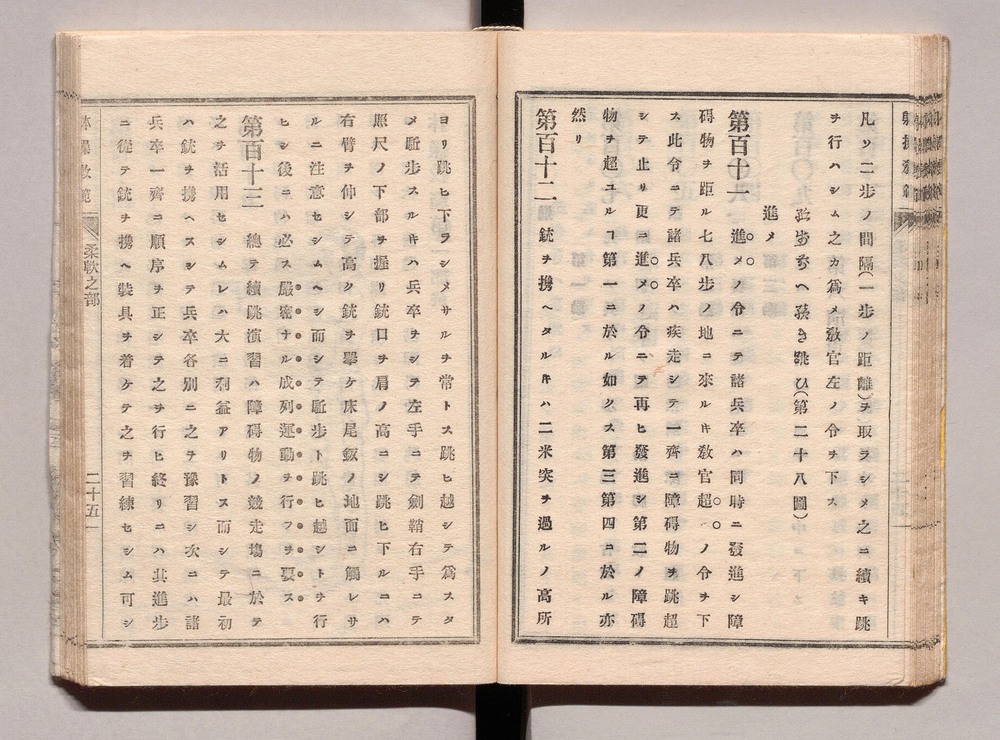 凡ソ二歩ノ間隔(一歩ノ距離)ヲ取ラシメ之ニ續キ跳
ヲ行ハシム之カ爲メ敎官左ノ令ヲ下ス
跳ひ(第二十八圖)
進メ
第百十一 進メノ令ニテ諸兵卒ハ同時ニ發進シ障
碍物ヲ距ル七八歩ノ地ニ來ルキ敎官超ノ令ヲ下
ス此令ニテ諸兵卒ハ疾走シテ一齊ニ障碍物ヲ跳超
シテ止リ更ニ進メノ令ニテ再ヒ發進シ第二ノ障碍
物ヲ超ユルヿ第一ニ於ル如クス第三第四ニ於ル亦
然リ
第百十二 銃ヲ携ヘタルキハ二米突ヲ過ルノ高所
ヨリ跳ヒ下ラシメサルヲ常トス跳ヒ越シテ爲スタ
メ駈歩スルキハ兵卒ヲシテ左手ニテ劍鞘右手ニテ
照尺ノ下部ヲ握リ銃口ヲ肩ノ高ニシ跳ヒ下ルニハ
右臂ヲ伸シテ高ク銃ヲ擧ケ床尾鈑ノ地面ニ觸レサ
ルニ注意セシムヘシ而シテ駈歩ト跳ヒ越シトヲ行
ヒシ後ニハ必ス嚴密ナル成列運動ヲ行フヲ要ス
第百十三 總テ續跳演習ハ障碍物ノ競走塲ニ於テ
之ヲ活用セシムレハ大ニ利益アリトス而シテ最初
ハ銃ヲ携ヘスシテ兵卒各別ニ之ヲ豫習シ次ニハ諸
兵卒一齊ニ順序ヲ正シテ之ヲ行ヒ終リニハ其進歩
ニ從テ銃ヲ携ヘ裝具ヲ着ケテ之ヲ習練セシム可シ
柔軟之部
二十五